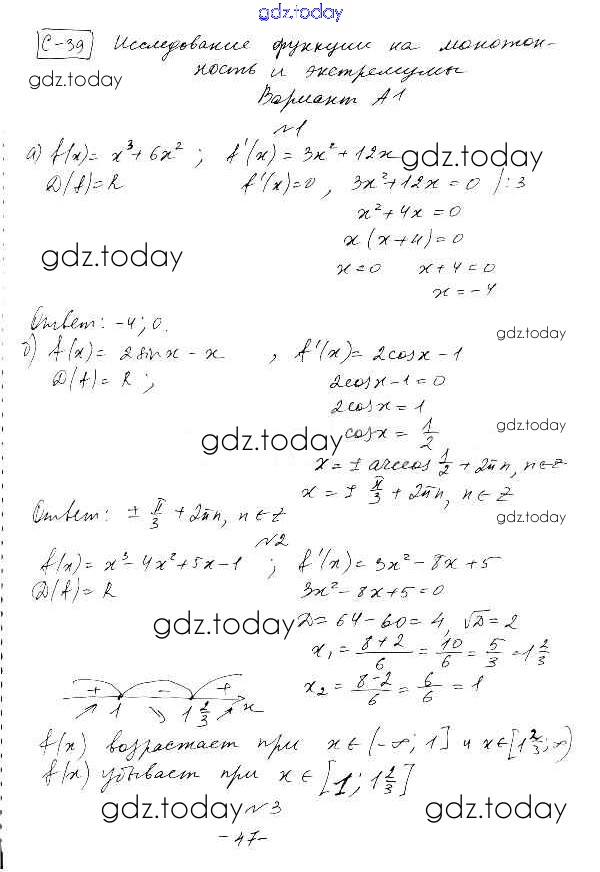 gdz.today
С-39 Исследование функции на монотон-
gdz.today
ность и экстремумы
Вариант А1
№1
а) f(x) = x³ + 6x² ; f'(x) = 3x² + 12x gdz.today
D(f) = R f'(x) = 0 , 3x² + 12x = 0 /: 3
x² + 4x = 0
gdz.today x (x + 4) = 0
x = 0 x + 4 = 0
x = -4
Ответ: -4; 0.
gdz.today
б) f(x) = 2 sin x - x , f'(x) = 2cosx - 1
D(f) = R ; 2cosx - 1 = 0
2cosx = 1
gdz.today cosx = 1/2 gdz.today
x = ± arccos 1/2 + 2πn, n ∈ Z
x = ± π/3 + 2πn, n ∈ Z
Ответ: ± π/3 + 2πn, n ∈ Z gdz.today
№2
f(x) = x³ - 4x² + 5x - 1 ; f'(x) = 3x² - 8x + 5
D(f) = R 3x² - 8x + 5 = 0
gdz.today D = 64 - 60 = 4, √D = 2
x₁ = (8+2)/6 = 10/6 = 5/3 = 1 2/3
x₂ = (8-2)/6 = 6/6 = 1
+ - +
1 1 2/3 x
f(x) возрастает при x ∈ (-∞; 1] и x ∈ [1 2/3; ∞)
f(x) убывает при x ∈ [1; 1 2/3]
gdz.today №3 gdz.today
- 47 -